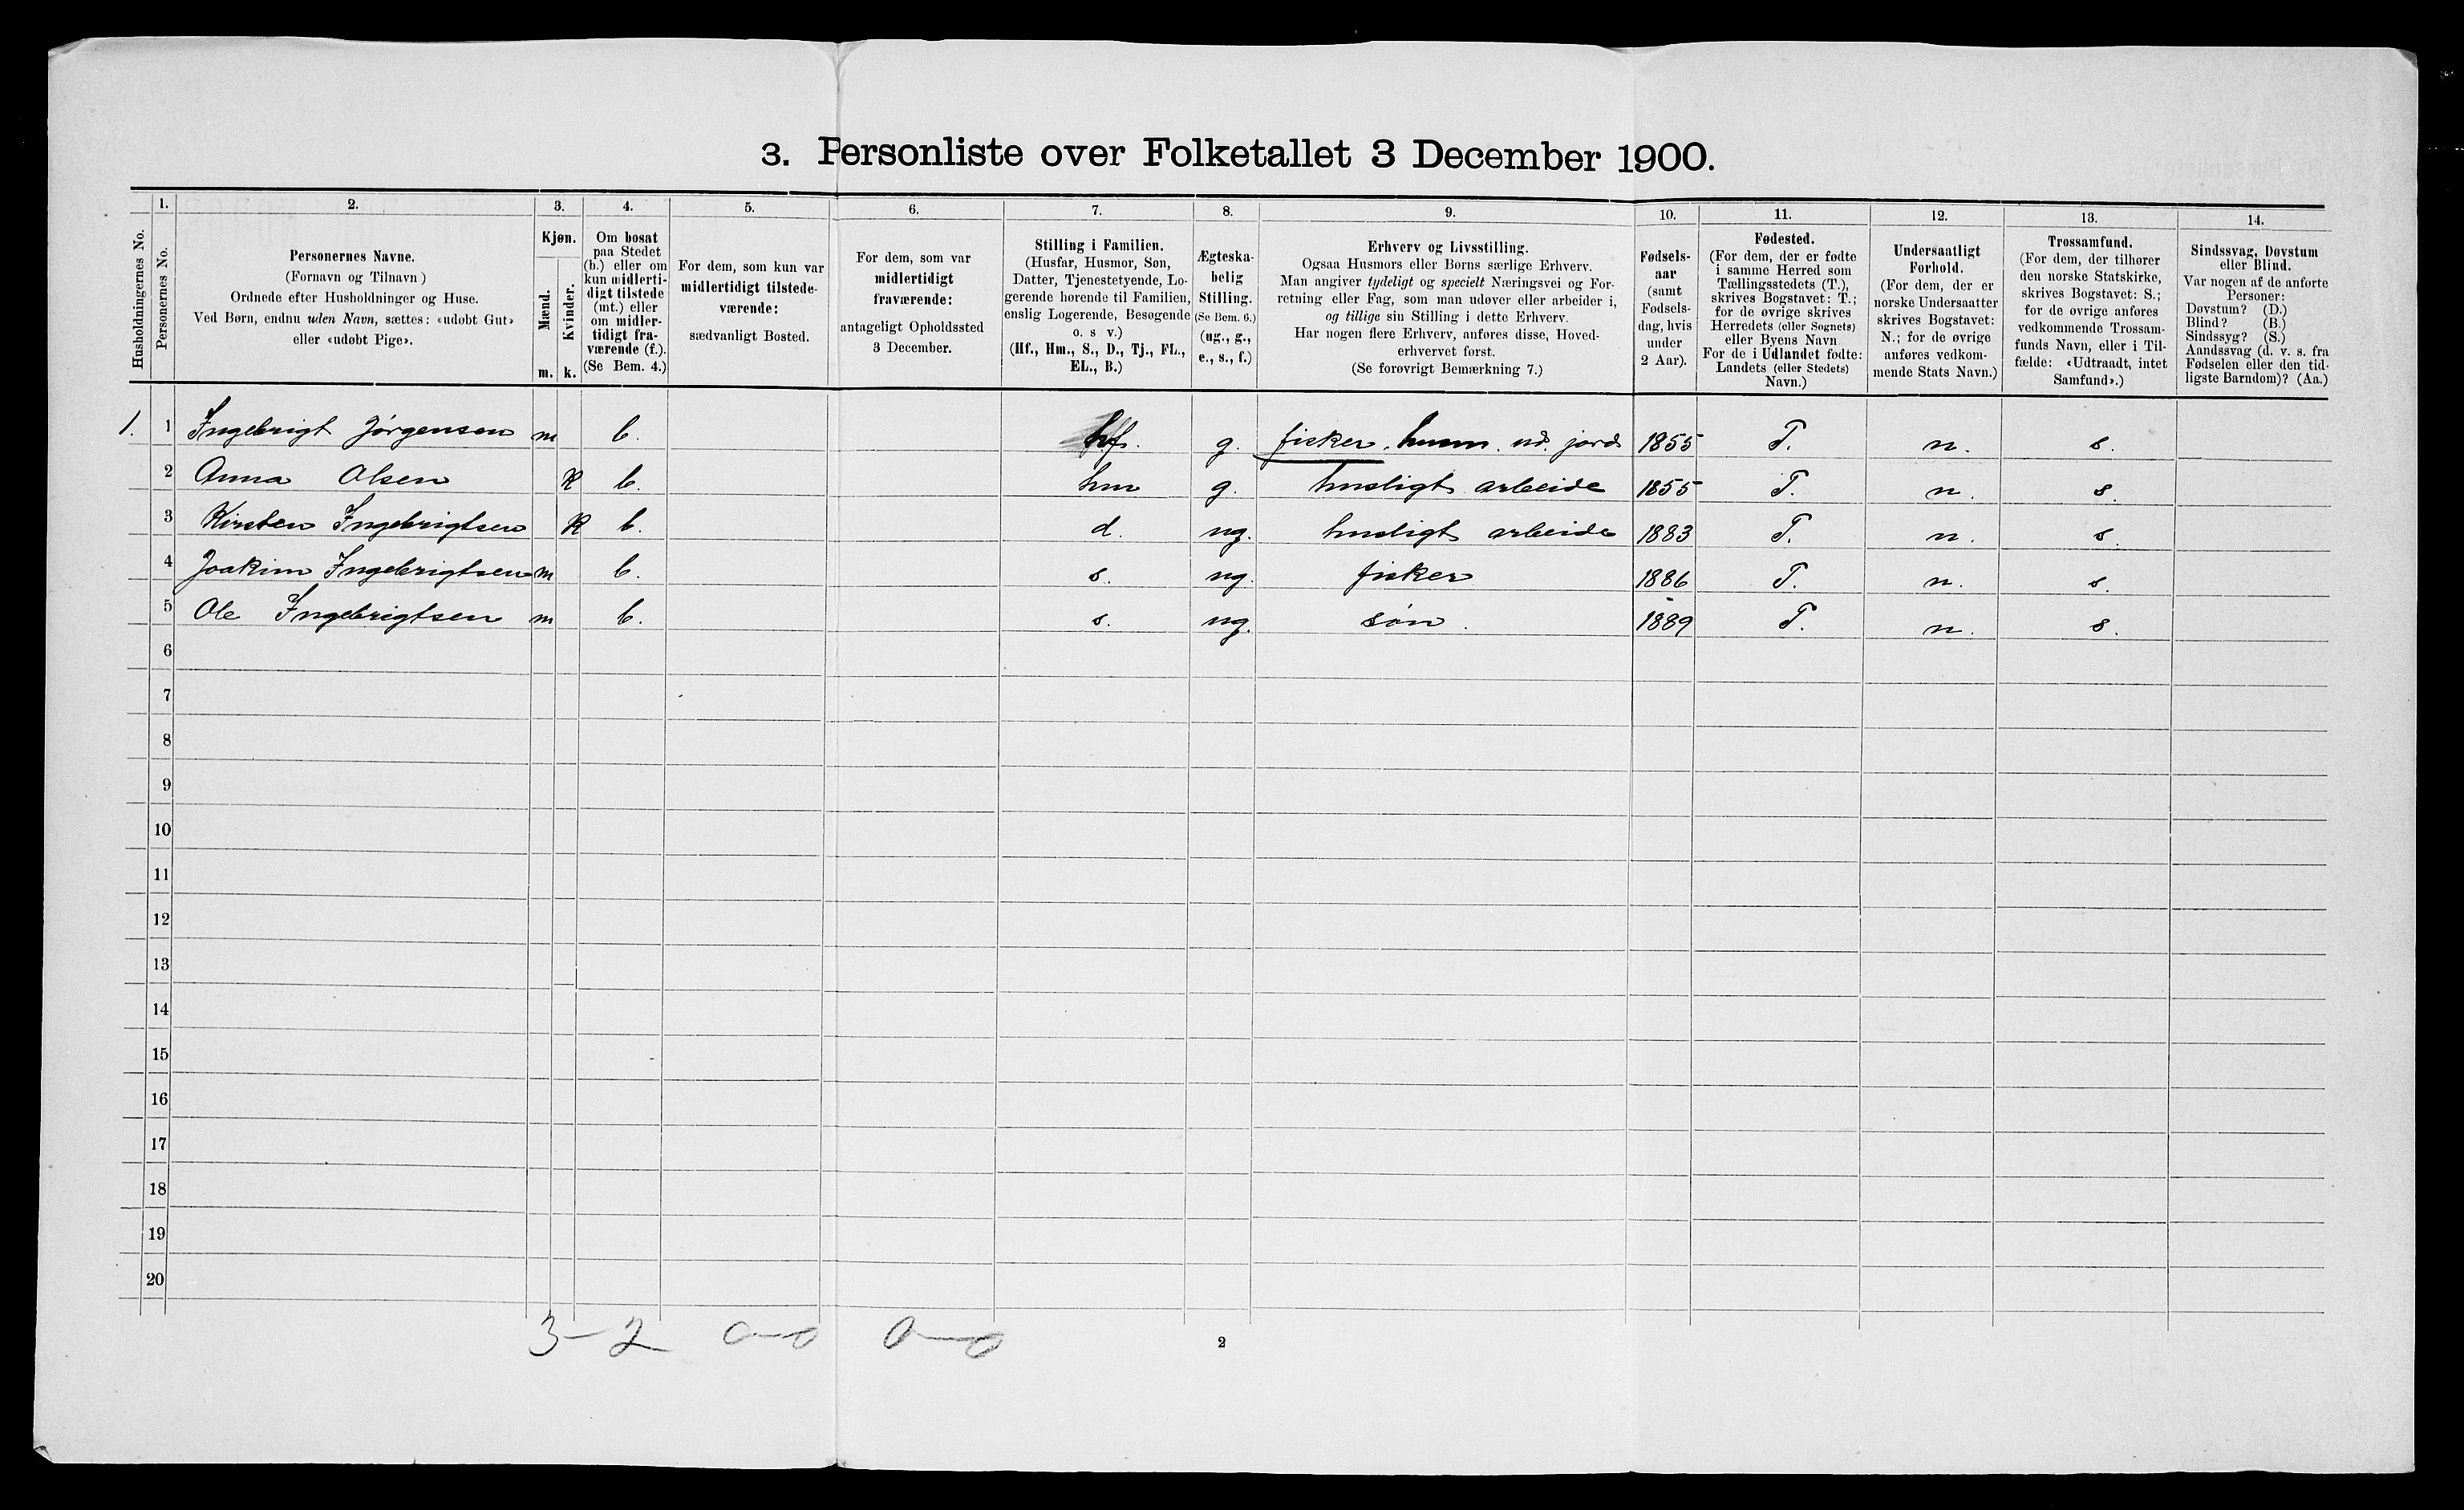 3. Personliste over Folketallet 3 December 1900.
1. 2. 3. 4. 5. 6. 7. 8. 9. 10. 11. 12. 13. 14.
Husholdningernes No.
Personernes No.
Personernes Navne.
(Fornavn og Tilnavn)
Ordnede efter Husholdninger og Huse.
Ved Børn, endnu uden Navn, sættes: «udøbt Gut»
eller «udøbt Pige».
Kjøn.
Mænd.
Kvinder.
m. k.
Om bosat
paa Stedet
(b.) eller om
kun midlerti-
digt tilstede
(mt.) eller
om midler-
tidigt fra-
værende (f.).
(Se Bem. 4.)
For dem, som kun var
midlertidigt tilstede-
værende:
sædvanligt Bosted.
For dem, som var
midlertidigt
fraværende:
antageligt Opholdssted
3 December.
Stilling i Familien.
(Husfar, Husmor, Søn,
Datter, Tjenestetyende, Lo-
gerende hørende til Familien,
enslig Logerende, Besøgende
o. s v.)
(Hf., Hm., S., D., Tj., FL.,
EL., B.)
Ægteska-
belig
Stilling.
(Se Bem. 6.)
(ug., g.,
e., s., f.)
Erhverv og Livsstilling.
Ogsaa Husmors eller Børns særlige Erhverv.
Man angiver tydeligt og specielt Næringsvei og For-
retning eller Fag, som man udøver eller arbeider i,
og tillige sin Stilling i dette Erhverv.
Har nogen flere Erhverv, anføres disse, Hoved-
erhvervet først.
(Se forøvrigt Bemærkning 7.)
Fødsels-
aar
(samt
Fødsels-
dag, hvis
under
2 Aar).
Fødested.
(For dem, der er fødte
i samme Herred som
Tællingsstedets (T.),
skrives Bogstavet: T.;
for de øvrige skrives
Herredets (eller Sognets)
eller Byens Navn
For de i Udlandet fødte:
Landets (eller Stedets)
Navn.)
Undersaatligt
Forhold.
(For dem, der er
norske Undersaatter
skrives Bogstavet:
N.; for de øvrige
anføres vedkom-
mende Stats Navn.)
Trossamfund.
(For dem, der tilhører
den norske Statskirke,
skrives Bogstavet: S.;
for de øvrige anføres
vedkommende Trossam-
funds Navn, eller i Til-
fælde: «Udtraadt, intet
Samfund».)
Sindssvag, Døvstum
eller Blind.
Var nogen af de anførte
Personer:
Døvstum? (D.)
Blind? (B.)
Sindssyg? (S.)
Aandssvag (d. v. s. fra
Fødselen eller den tid-
ligste Barndom)? (Aa.)
1. 1 Ingebrigt Jørgensen m b. hf. g. fisker, husm. ud. jord 1855 T. n. s.
2 Anna Olsen k b. hm g. husligt arbeide 1855 T. n. s.
3 Kirsten Ingebrigtsen k b. d. ug. husligt arbeide 1883 T. n. s.
4 Joakim Ingebrigtsen m b. s. ug. fisker 1886 T. n. s.
5 Ole Ingebrigtsen m b. s. ug. søn. 1889 T. n. s.
6
7
8
9
10
11
12
13
14
15
16
17
18
19
20
3-2 0-0 0-0
2